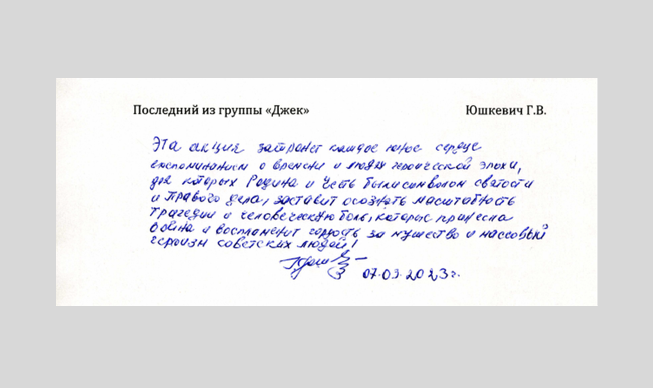 Последний из группы «Джек» Юшкевич Г.В.
Эта акция затронет каждое юное сердце
воспоминанием о времени и людях героической эпохи,
для которых Родина и Честь были символом святости
и правого дела, заставит осознать масштабность
трагедии и человеческую боль, которые принесла
война и воспламенит гордость за мужество и массовый
героизм советских людей!
07.03.2023 г.